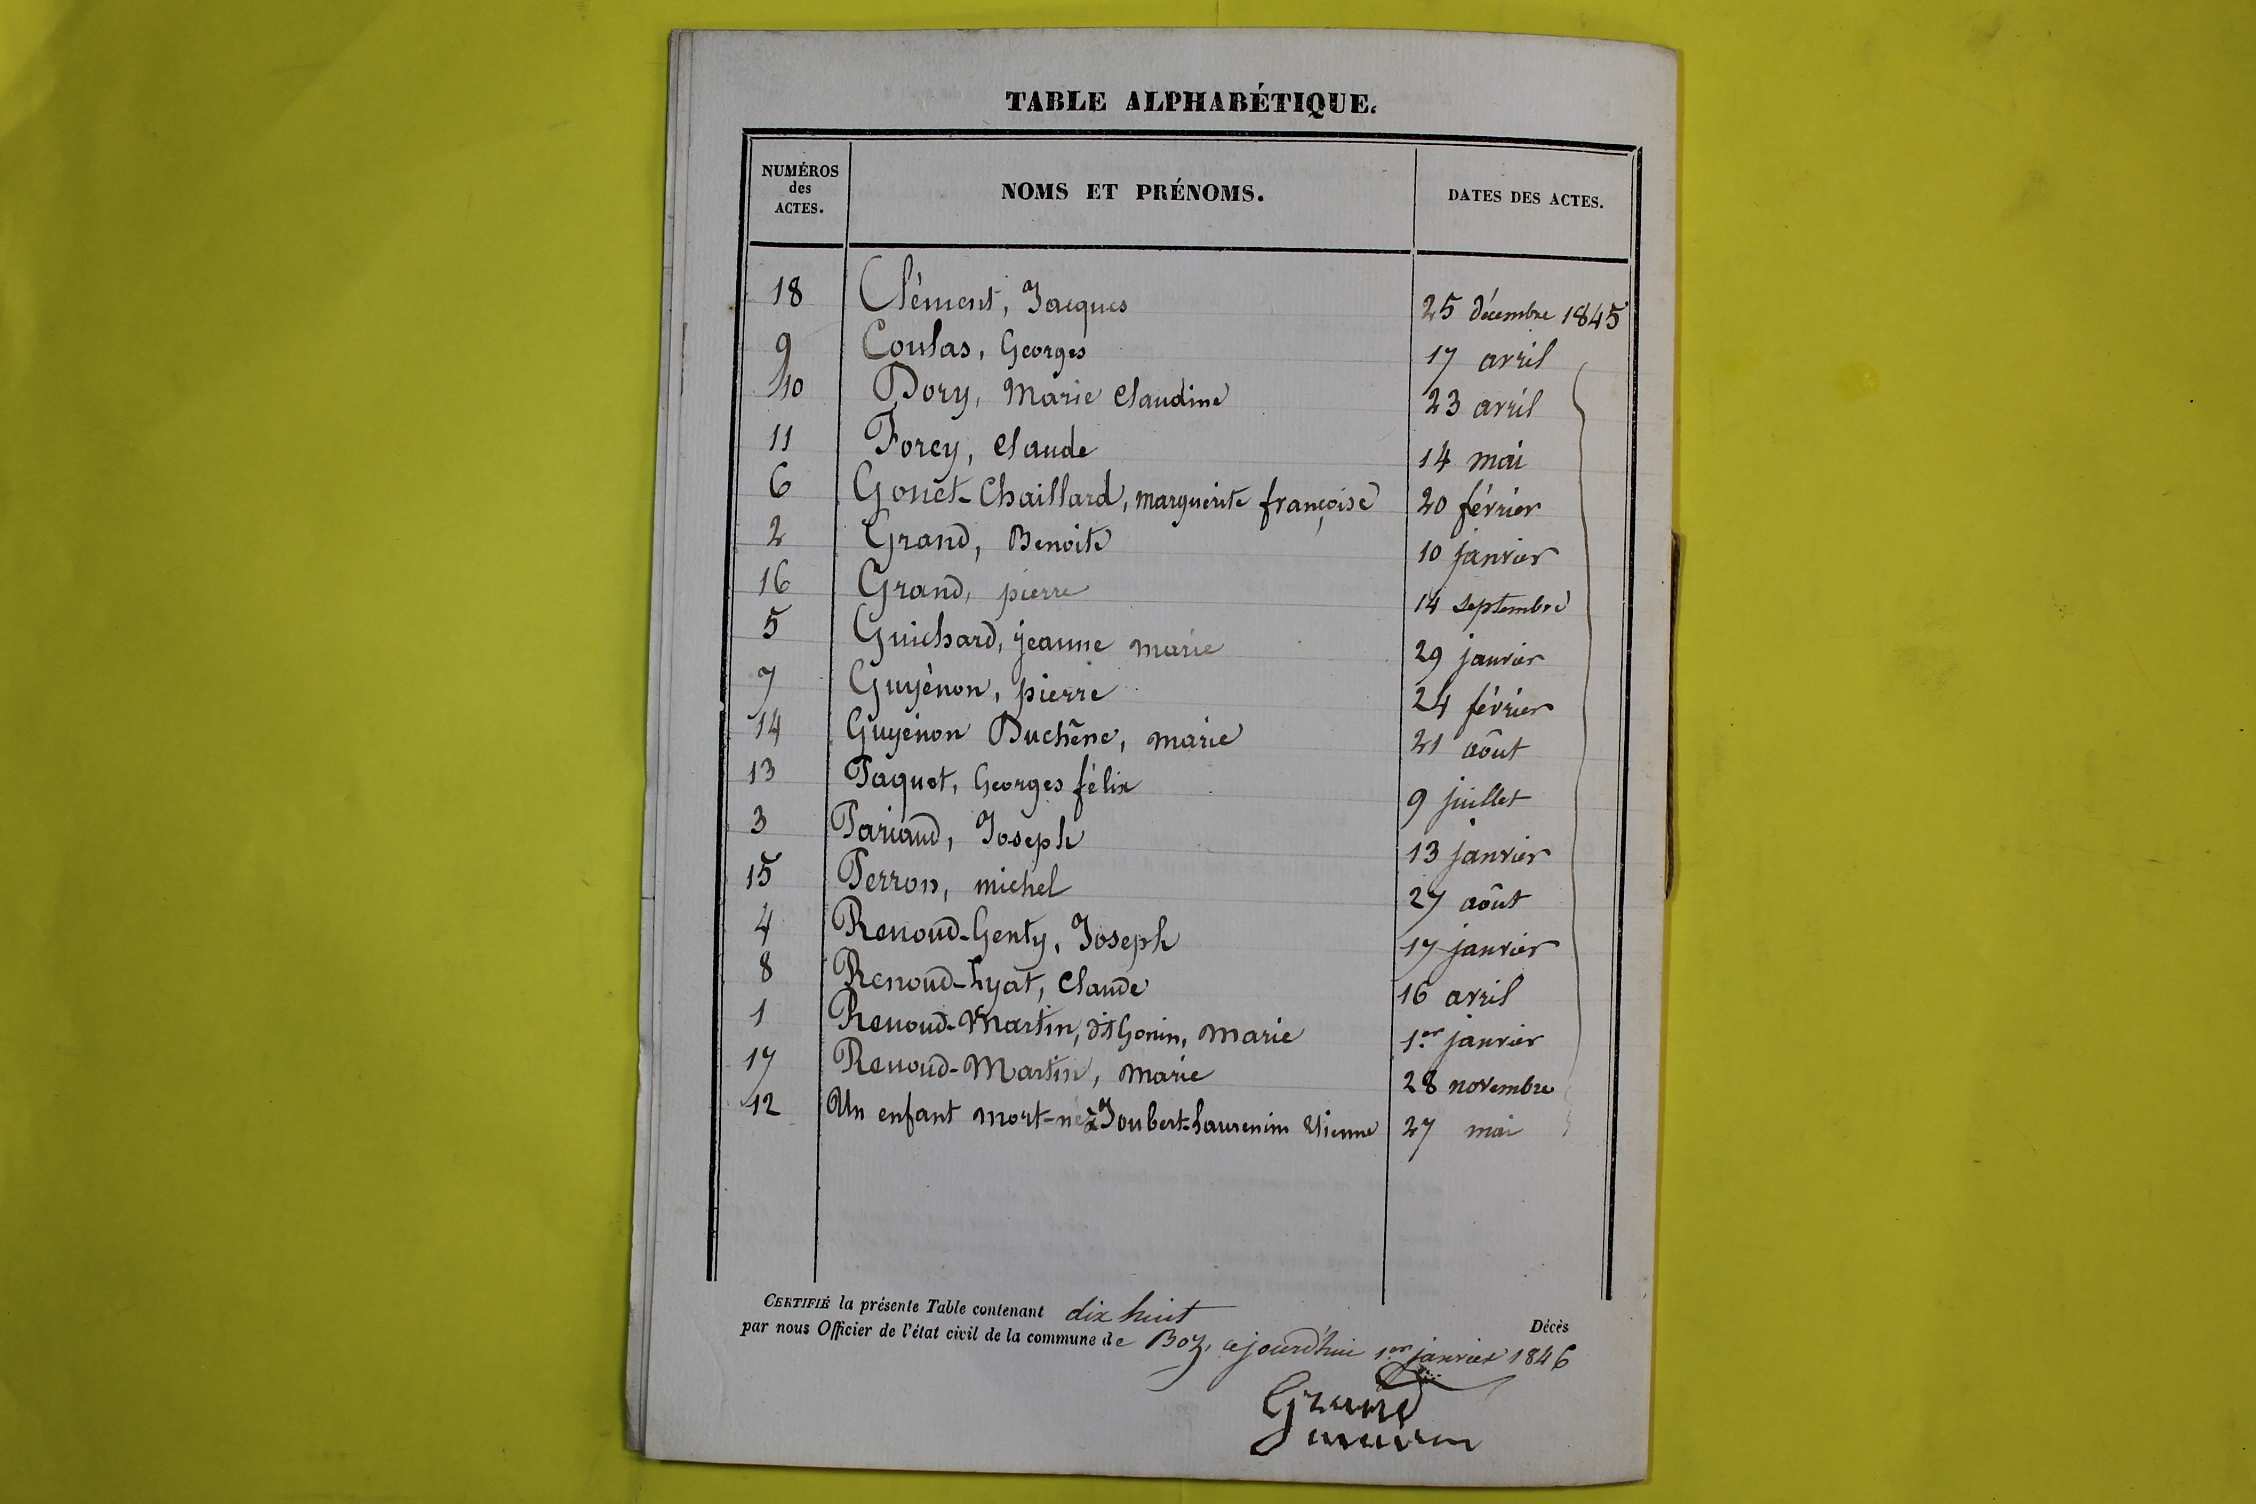 TABLE ALPHABÉTIQUE.
NUMÉROS des ACTES. NOMS ET PRÉNOMS. DATES DES ACTES.
18 Clément, Jacques 25 décembre 1845
9 Coulas, Georges 17 avril
10 Dory, Marie Claudine 23 avril
11 Forey, Claude 14 mai
6 Gonet-Chaillard, marguerite françoise 20 février
2 Grand, Benoite 10 janvier
16 Grand, pierre 14 septembre
5 Guichard, jeanne marie 29 janvier
7 Guyénon, pierre 24 février
14 Guyénon Duchêne, marie 21 aôut
13 Paquet, Georges félix 9 juillet
3 Pariaud, Joseph 13 janvier
15 Perron, michel 27 aôut
4 Renoud-Genty, Joseph 17 janvier
8 Renoud-Lyat, Claude 16 avril
1 Renoud-Martin, dit Gonin, marie 1er janvier
17 Renoud-Martin, marie 28 novembre
12 Un enfant mort-né à Joubert-Laurencin Etienne 27 mai
CERTIFIÉ la présente Table contenant dix huit Décès
par nous Officier de l'état civil de la commune de Boz, cejourd'hui 1er janvier 1846
Grand